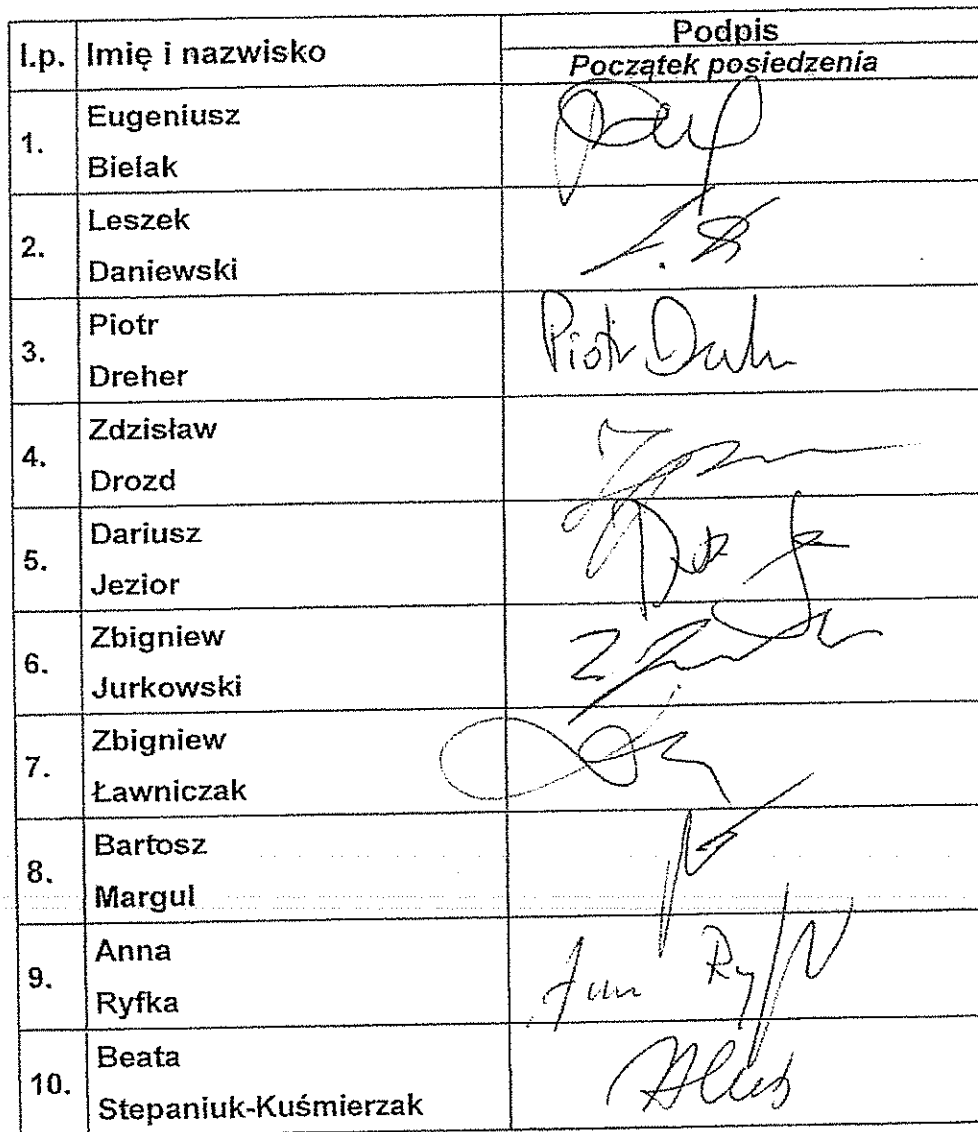 l.p. Imię i nazwisko Podpis
Początek posiedzenia
1. Eugeniusz
Bielak
2. Leszek
Daniewski
3. Piotr
Dreher
Piotr
4. Zdzisław
Drozd
5. Dariusz
Jezior
6. Zbigniew
Jurkowski
7. Zbigniew
Ławniczak
8. Bartosz
Margul
9. Anna
Ryfka
10. Beata
Stepaniuk-Kuśmierzak